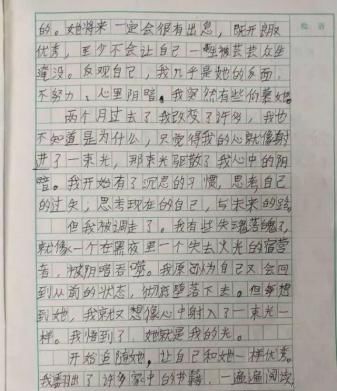 批语
的。她将来一定会很有出息，既开朗
优秀，至少不会让自己一生被芸芸众生
淹没。反观自己，我几乎是她的反面，
不努力、心里阴暗。我突然有些仰慕她。
两个月过去了我改变了许多，我也
不知道是为什么，只觉得我的心就像射
进了一束光，那束光驱散了我心中的阴
暗。我开始有了沉思的习惯，思考自己
的过失，思考现在的自己，与未来的路。
但我被调走了。我有些失魂落魄了，
就像一个在黑夜里一个失去火光的宿营
者，被阴暗吞噬。我原以为自己又会回
到从前的状态，彻底堕落下去。但每想
到她，我就又想像心中射入了一束光一
样。我悟到了，她就是我的光。
开始追随她，让自己和她一样优秀。
我翻出了许多家中的书籍，一遍遍阅读